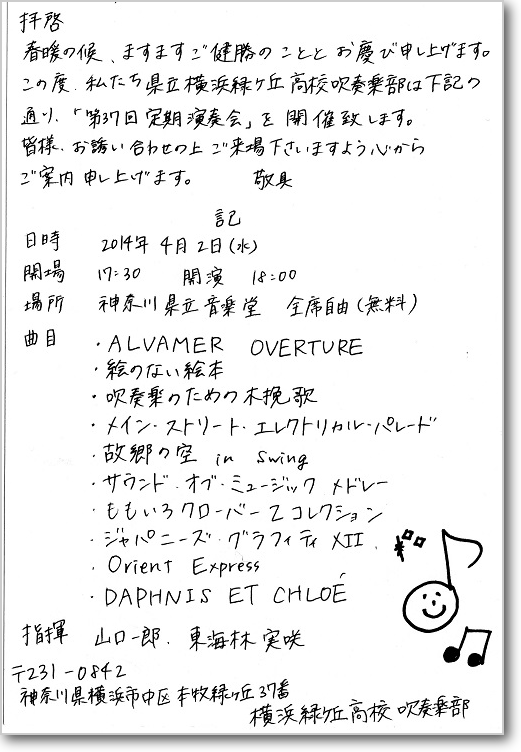 拝啓
春暖の候、ますますご健勝のこととお慶び申し上げます。
この度、私たち県立横浜緑ケ丘高校吹奏楽部は下記の
通り、「第37回定期演奏会」を開催致します。
皆様、お誘い合わせの上ご来場下さいますよう心から
ご案内申し上げます。 敬具
記
日時 2014年4月2日(水)
開場 17:30 開演 18:00
場所 神奈川県立音楽堂 全席自由(無料)
曲目 ・ALVAMER OVERTURE
・絵のない絵本
・吹奏楽のための木挽歌
・メイン・ストリート・エレクトリカル・パレード
・故郷の空 in Swing
・サウンド・オブ・ミュージック メドレー
・ももいろクローバーZコレクション
・ジャパニーズ・グラフィティ XII
・Orient Express
・DAPHNIS ET CHLOÉ
指揮 山口一郎、東海林実咲
〒231-0842
神奈川県横浜市中区本牧緑ケ丘37番
横浜緑ケ丘高校吹奏楽部